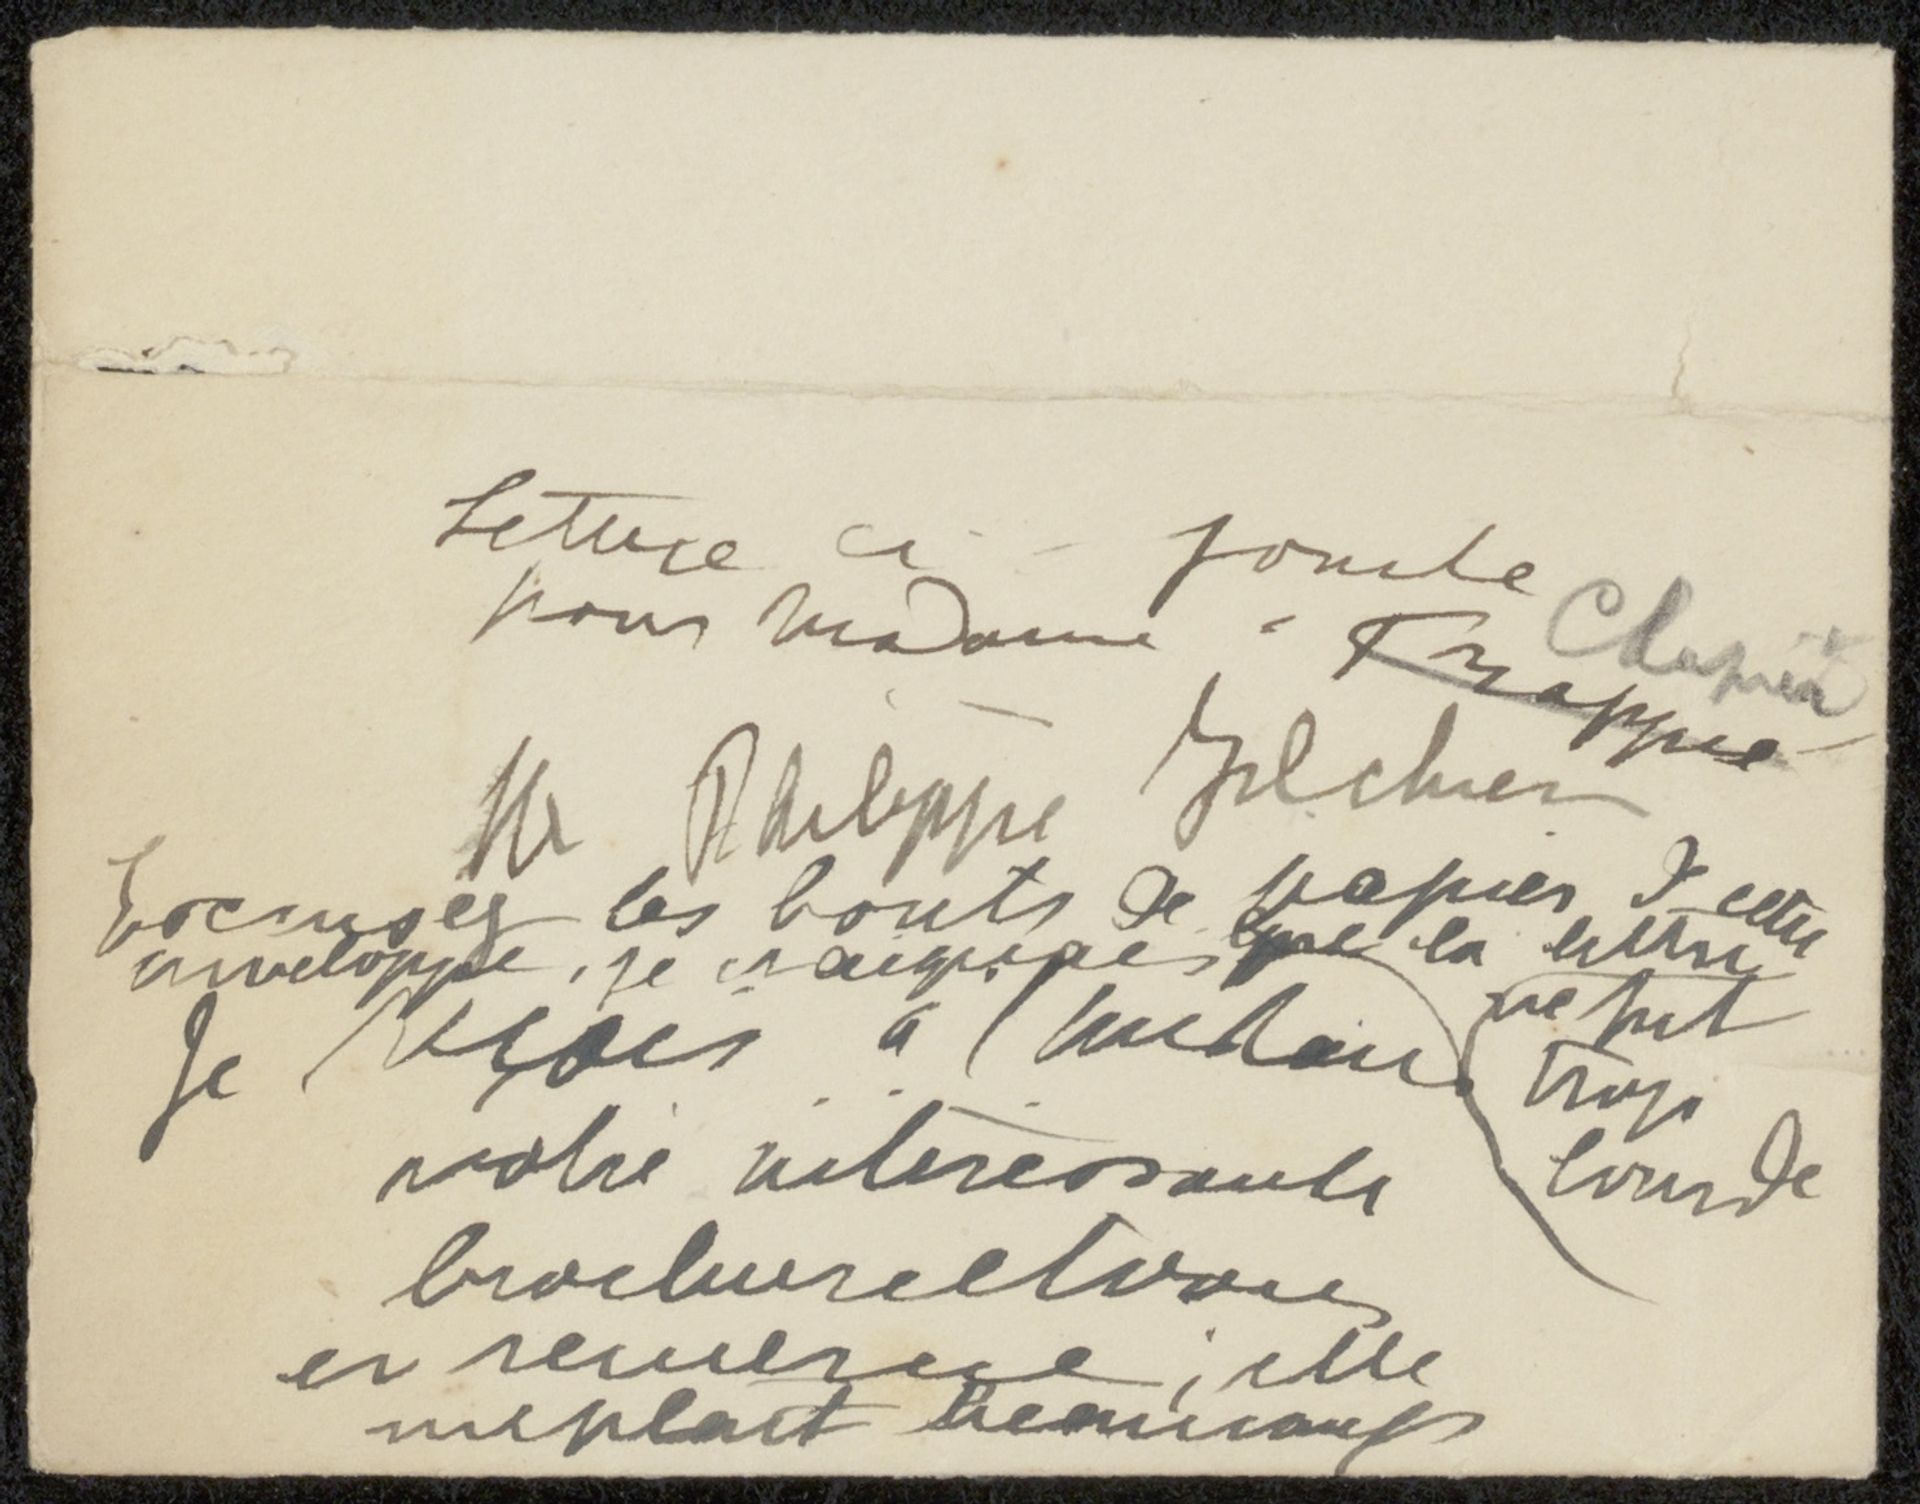 Lettre ci-jointe
pour Madame - Frappé - Clapier
Mr Philippe Zilcken
Excusez les bouts de papier d cette
enveloppe, je craignais que la lettre
ne fut
trop
lourde
Je reçois à l'instant
votre intéressante
brochure et vous
en remercie ; elle
me plait beaucoup